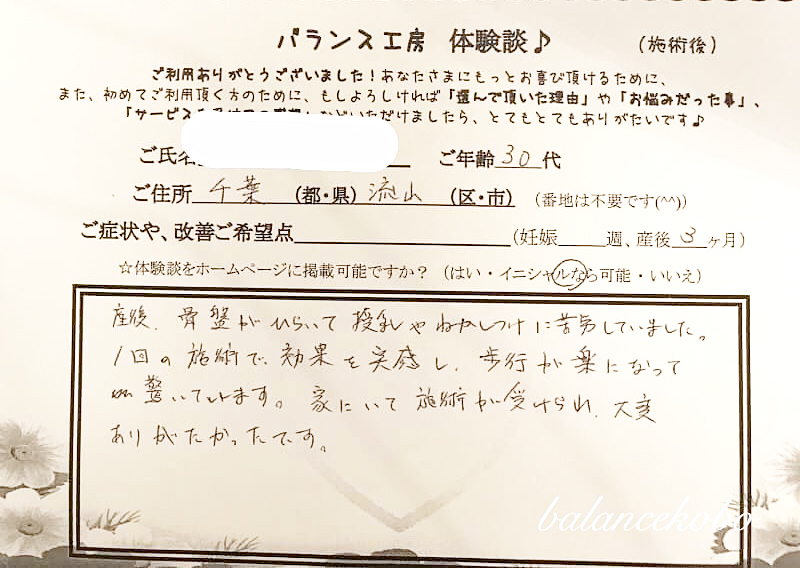 バランス工房 体験談♪ (施術後)
ご利用ありがとうございました！あなたさまにもっとお喜び頂けるために、
また、初めてご利用頂く方のために、もしよろしければ「選んで頂いた理由」や「お悩みだった事」、
「サービス いただけましたら、とてもとてもありがたいです♪
ご氏名 ご年齢 30 代
ご住所 千葉 (都・県) 流山 (区・市) (番地は不要です(^^))
ご症状や、改善ご希望点 (妊娠 週、産後 3 ヶ月)
☆体験談をホームページに掲載可能ですか？ (はい・イニシャルなら可能・いいえ)
産後、骨盤がひらいて授乳やねかしつけに苦労していました。
1回の施術で、効果を実感し、歩行が楽になって
驚いています。家にいて施術が受けられ、大変
ありがたかったです。
balancekobo